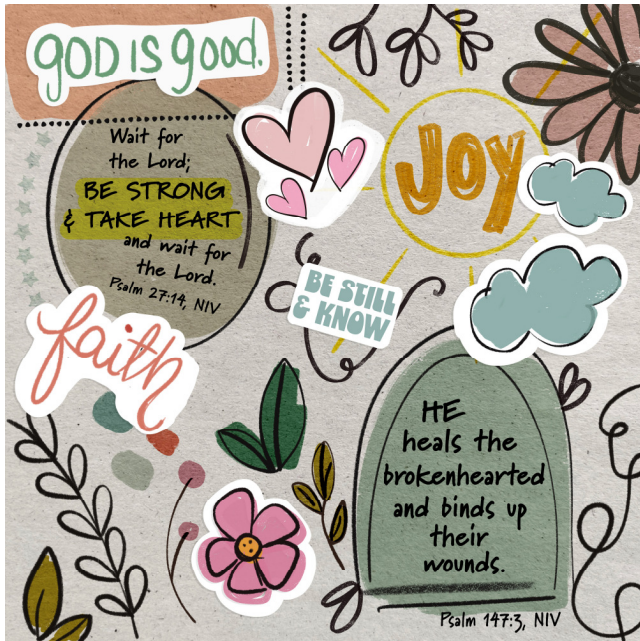 GOD IS good.
Wait for
the Lord;
BE STRONG
& TAKE HEART
and wait for
the Lord.
Psalm 27:14, NIV
JOY
BE STILL
& KNOW
faith
HE
heals the
brokenhearted
and binds up
their
wounds.
Psalm 147:3, NIV